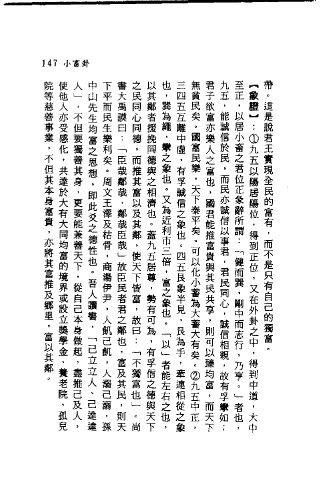 147 小畜卦
帶。這是說君王實現全民的富有，而不是只有自己的獨富。
【象證】：①九五以陽居陽位，得到正位，又在外卦之中，得到中道，大中
至正，以居小畜之君位正彖辭所謂：「健而巽，剛中而志行，乃亨。」者也，
九五，能誠信於民，而民亦誠信以事君，君民同心，誠信相親，故有孚攣如；
君子欲富亦樂人之富也，國君能推富貴與其民共享，則可以臻均富，而天下
無貧民矣。國富民樂，天下泰平矣，可以化小畜為大畜大有矣。②九五中正，
三四五互離中虛，有孚誠信之象也，四五艮象半見，艮為手，牽連相從之象
也，巽為繩，攣之象也，又為近利市三倍，富之象也。「以」者能左右之也，
以其鄰者援挽同德與之相濟也。蓋九五居尊，勢有可為，有孚信之德與天下
之民同心同德，而推其富以及其鄰，使天下皆富，故曰：「不獨富也」。尚
書大禹謨曰：「臣哉鄰哉，鄰哉臣哉」故臣民者君之鄰也，富及其民，則天
下平而民生樂利矣。周文王澤及枯骨，商湯伊尹，人飢己飢，人溺己溺，孫
中山先生均富之思想，即此爻之德性也。吾人讀書，「己立立人、己達達
人」，不但要獨善其身，更要能兼善天下，從自己本身做起，盡推己及人，
使他人亦受感化，共達於大有大同均富的境界或設立獎學金，養老院、孤兒
院等慈善事業，不但其本身富貴，亦將其富推及鄉里，富以其鄰。